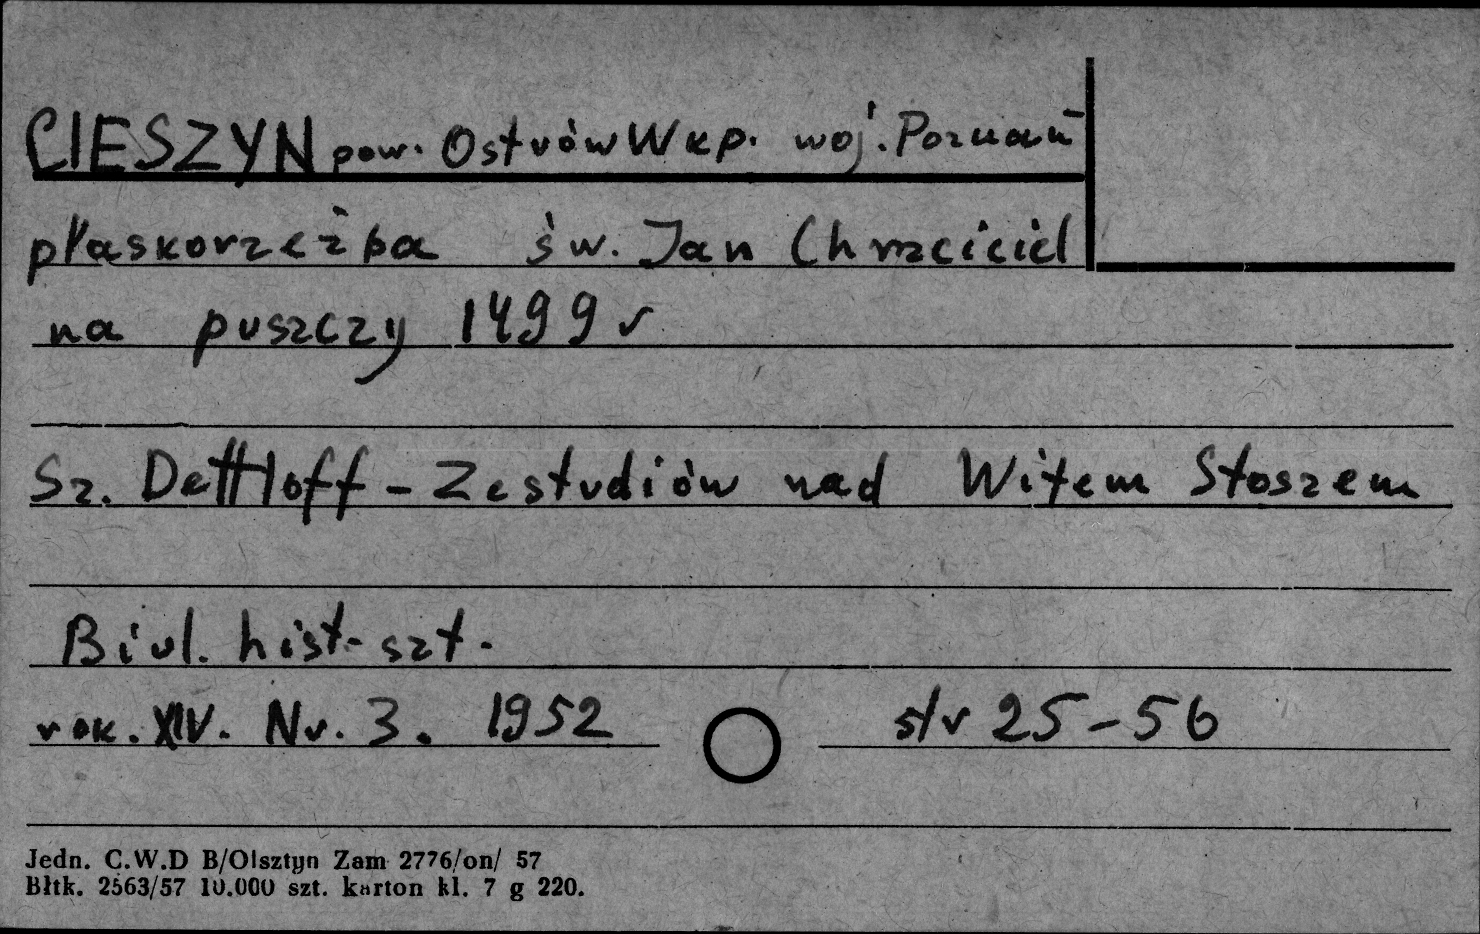 CIESZYN pow. Ostrów Wkp. woj. Poznań
płaskorzeźba św. Jan Chrzciciel
na puszczy 1499 r
Sz. Dettloff - Ze studiów nad Witem Stoszem
Biul. hist. szt.
rok. XIV. Nr. 3. 1952 str 25-56
Jedn. C.W.D B/Olsztyn Zam 2776/on/ 57
Błtk. 2563/57 10.000 szt. karton kl. 7 g 220.